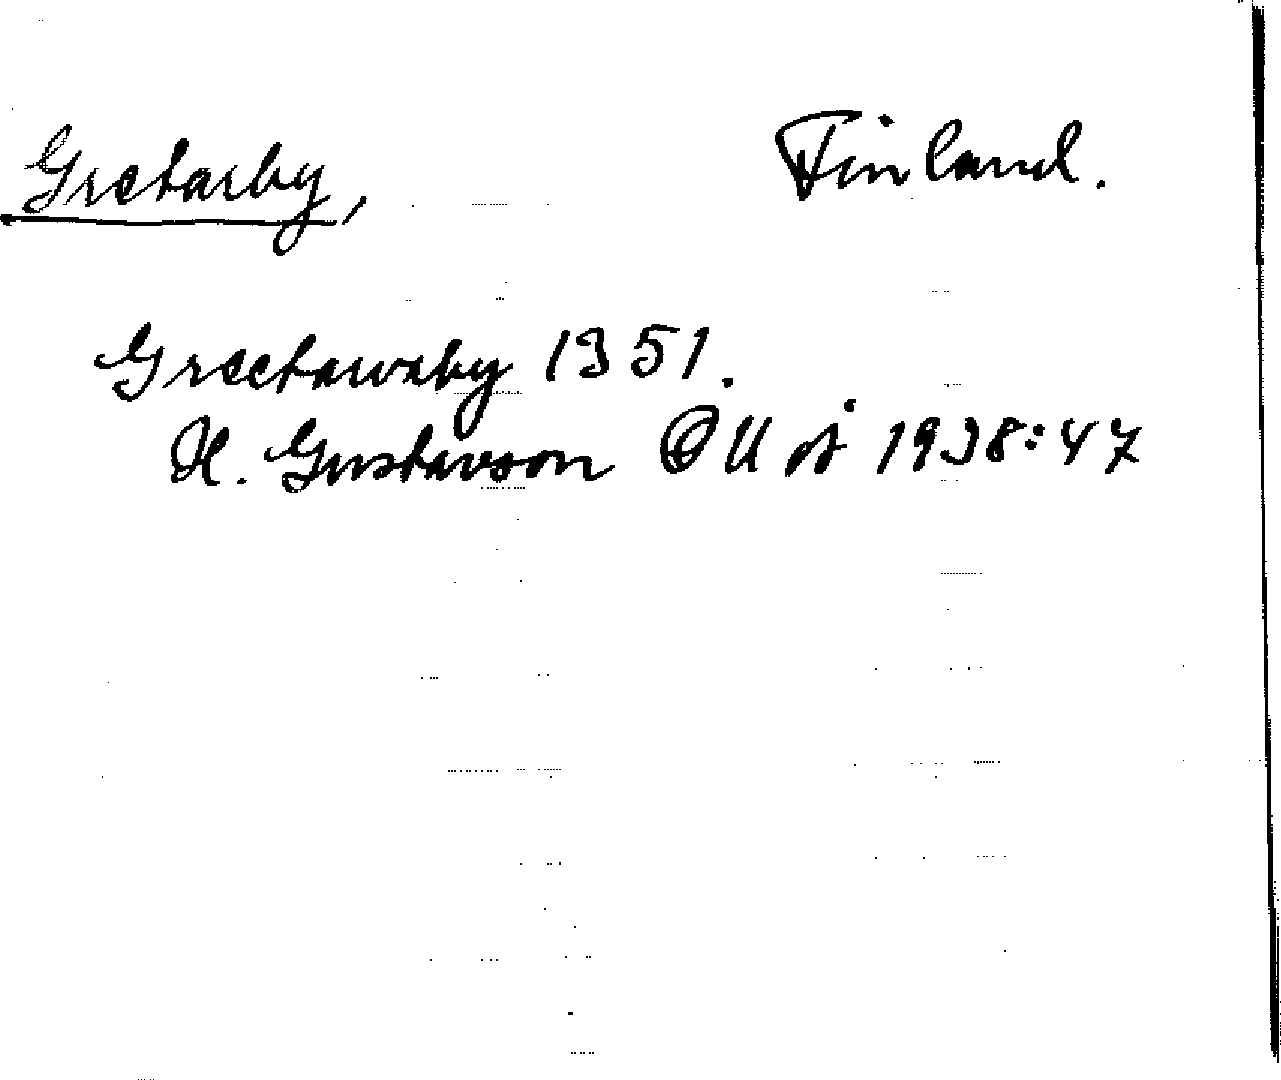 Gretarby, Finland.
Greetarsby 1351.
H. Gustavson OUoÅ 1938:47